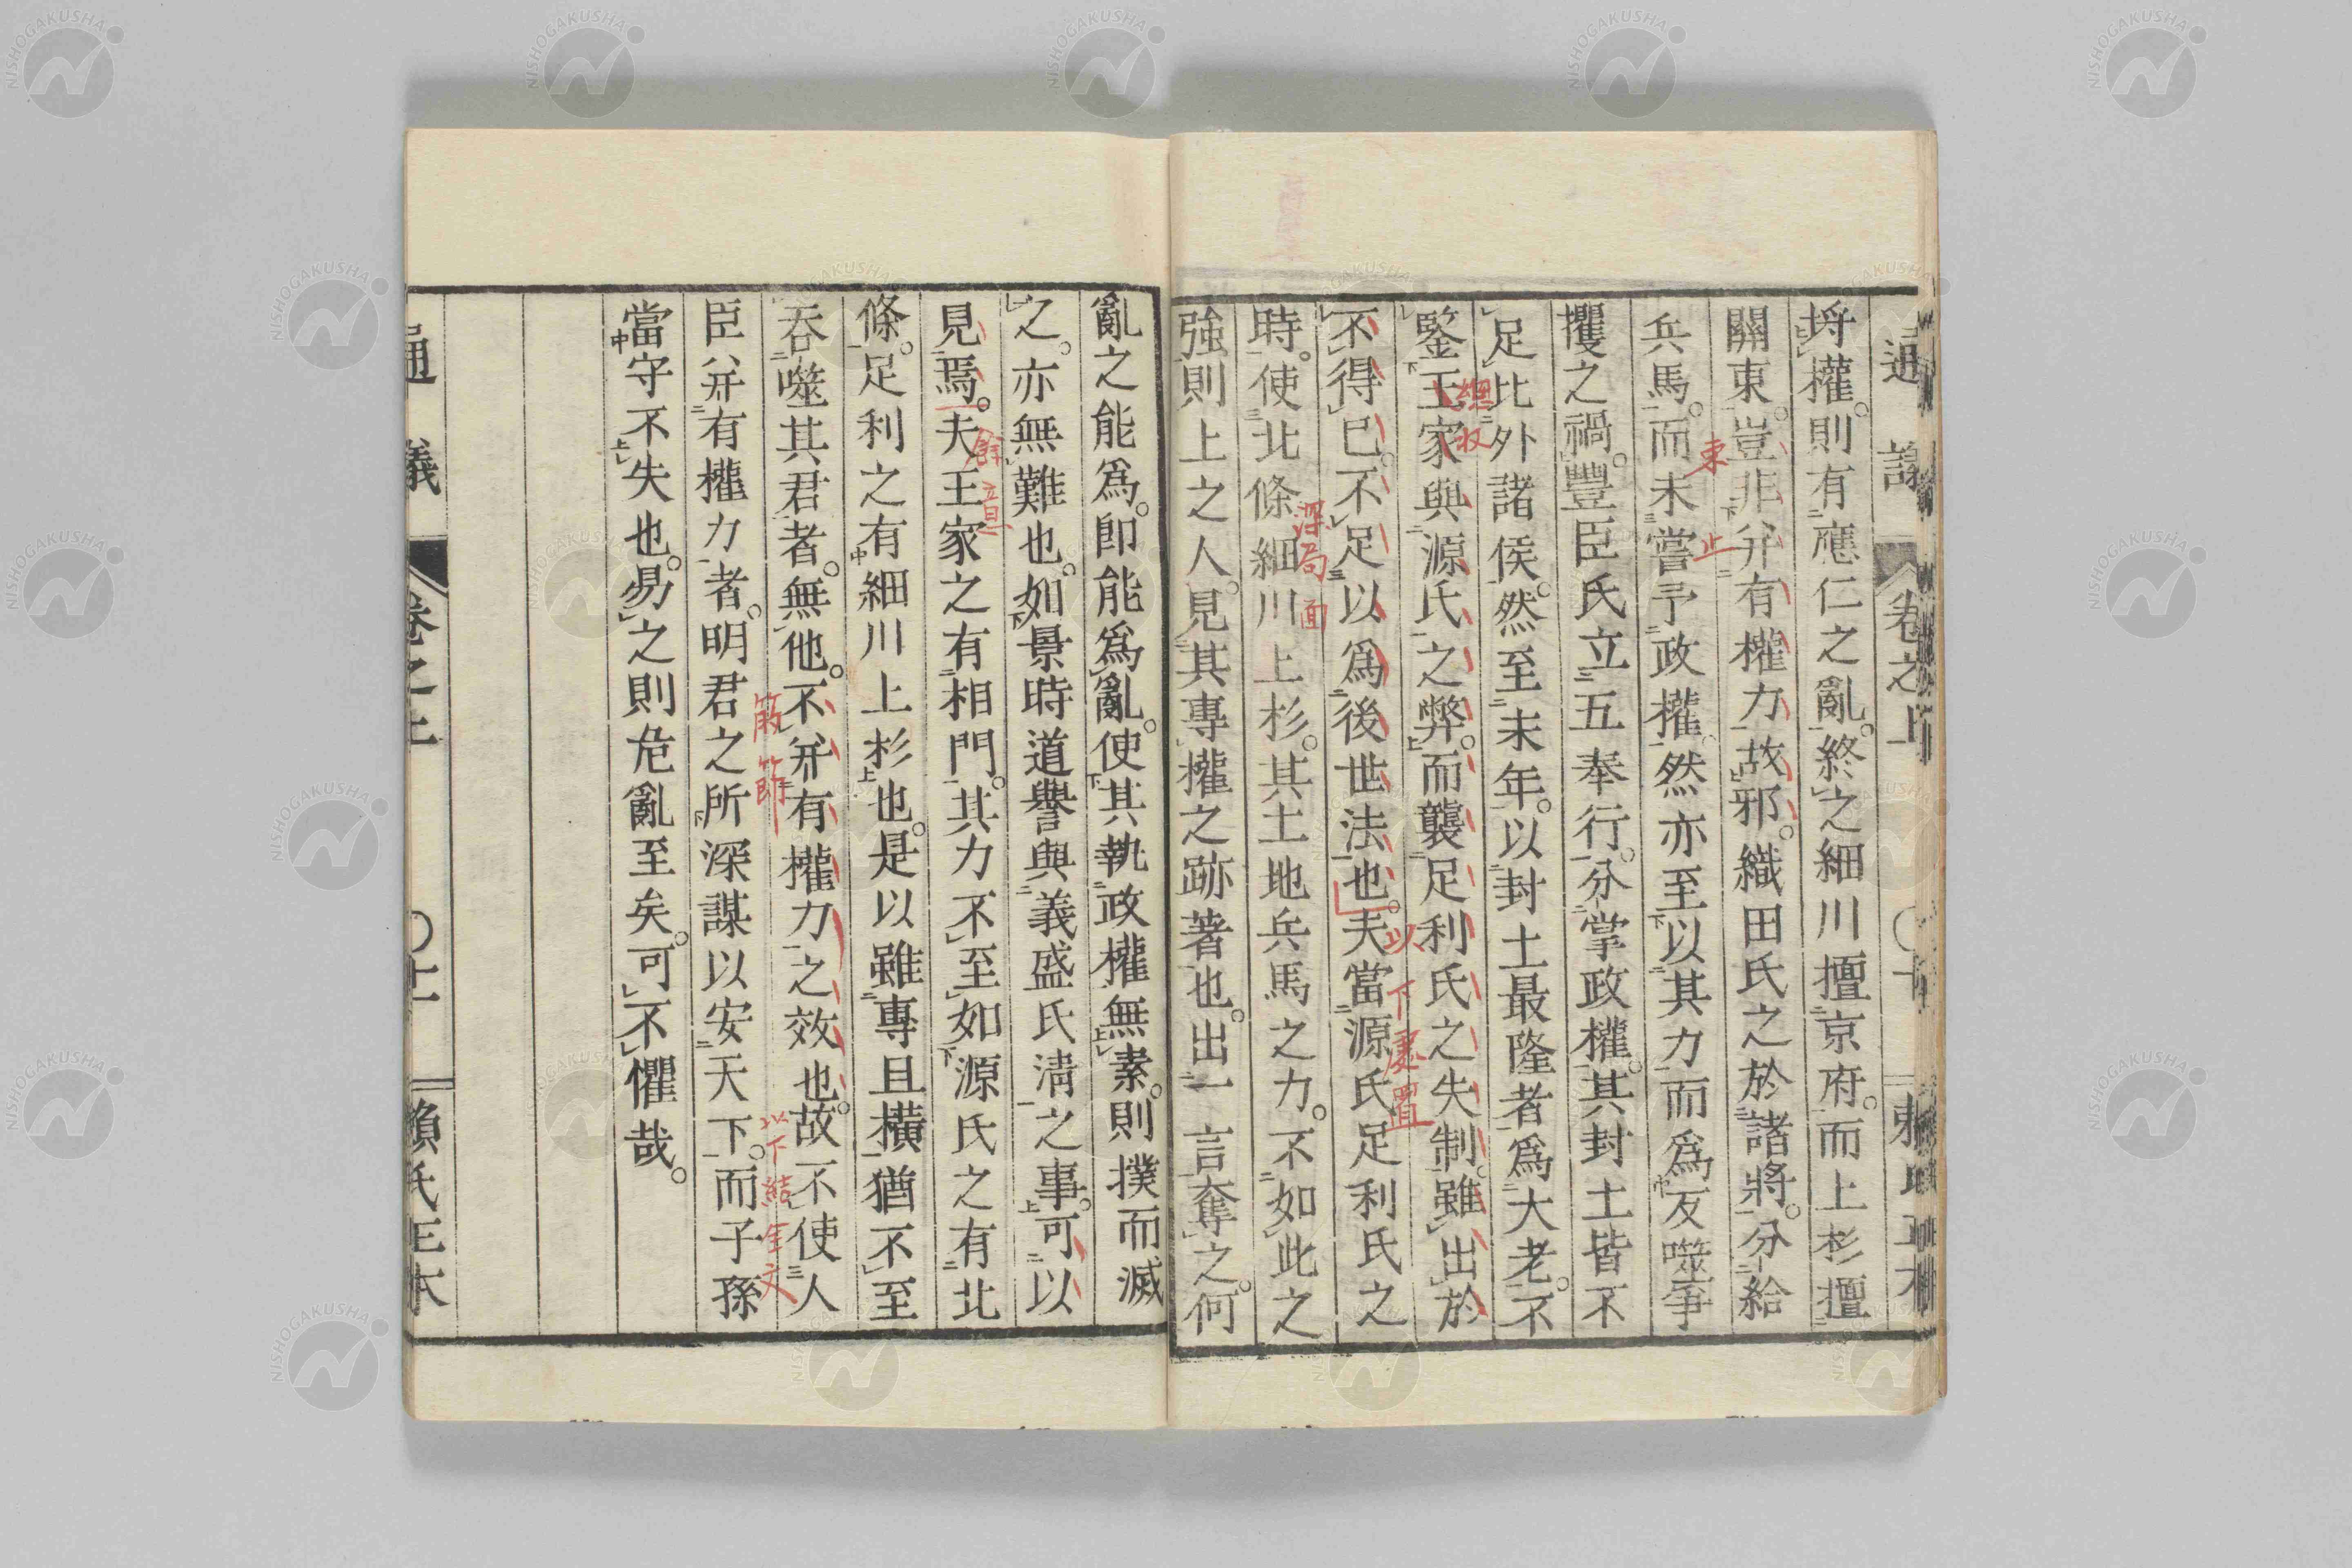 通議 卷之上 〇十 賴氏正本
埒權。則有應仁之亂。終之細川擅京府。而上杉擅
關東。豈非幷有權力故邪。織田氏之於諸將。分給
兵馬。而未嘗予政權。然亦至以其力而爲反噬爭
攫之禍。豐臣氏立五奉行。分掌政權。其封土皆不
足比外諸侯。然至末年。以封土最隆者爲大老。不
鑒王家與源氏之弊。而襲足利氏之失制。雖出於
不得已。不足以爲後世法也。夫當源氏足利氏之
時。使北條細川上杉。其土地兵馬之力。不如此之
強。則上之人。見其專權之跡著也。出一言奪之。何
東
止
總收
以下處置
深局面
亂之能爲。卽能爲亂。使其執政權無素。則撲而滅
之。亦無難也。如景時道譽與義盛氏淸之事。可以
見焉。夫王家之有相門。其力不至如源氏之有北
條。足利之有細川上杉也。是以雖專且橫。猶不至
吞噬其君者。無他。不幷有權力之效也。故不使人
臣幷有權力者。明君之所深謀以安天下。而子孫
當守不失也。易之則危亂至矣。可不懼哉。
餘意
筋節
以下結全文
通議 卷之上 〇十一 賴氏正本
NISHOGAKUSHA